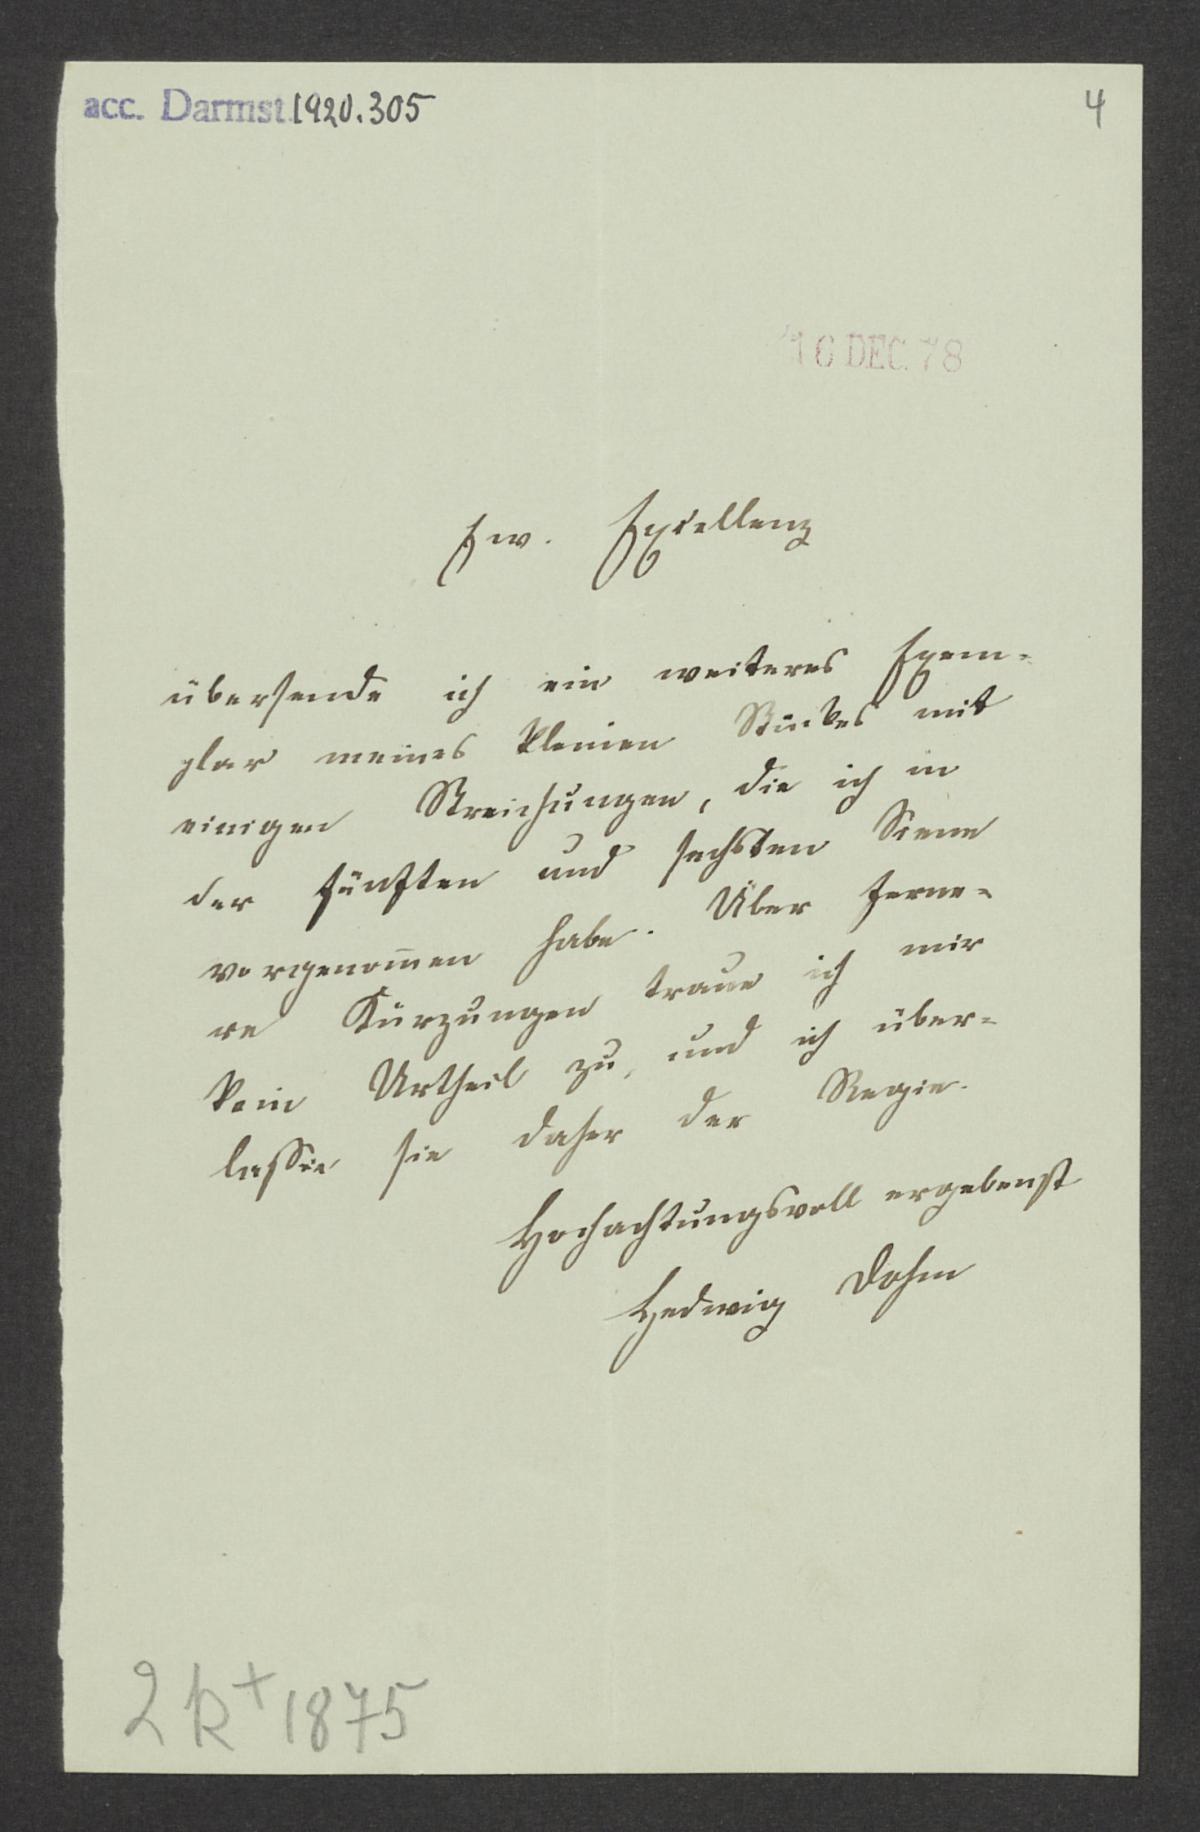 acc. Darmst. 1920.305
4
16 DEC. 78
Ew. Excellenz
übersende ich ein weiteres Exem=
plar meines kleinen Stückes mit
einigen Streichungen, die ich in
der fünften und sechsten Scene
vorgenom̅en habe. Über ferne=
re Kürzungen traue ich mir
kein Urtheil zu, und ich über=
lasse sie daher der Regie.
Hochachtungsvoll ergebenst
Hedwig Dohm
2k+ 1875